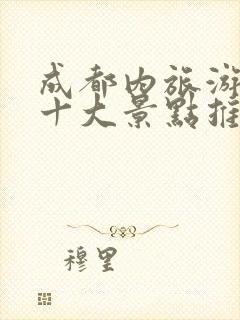 成都内旅游
十大景點推
穆里